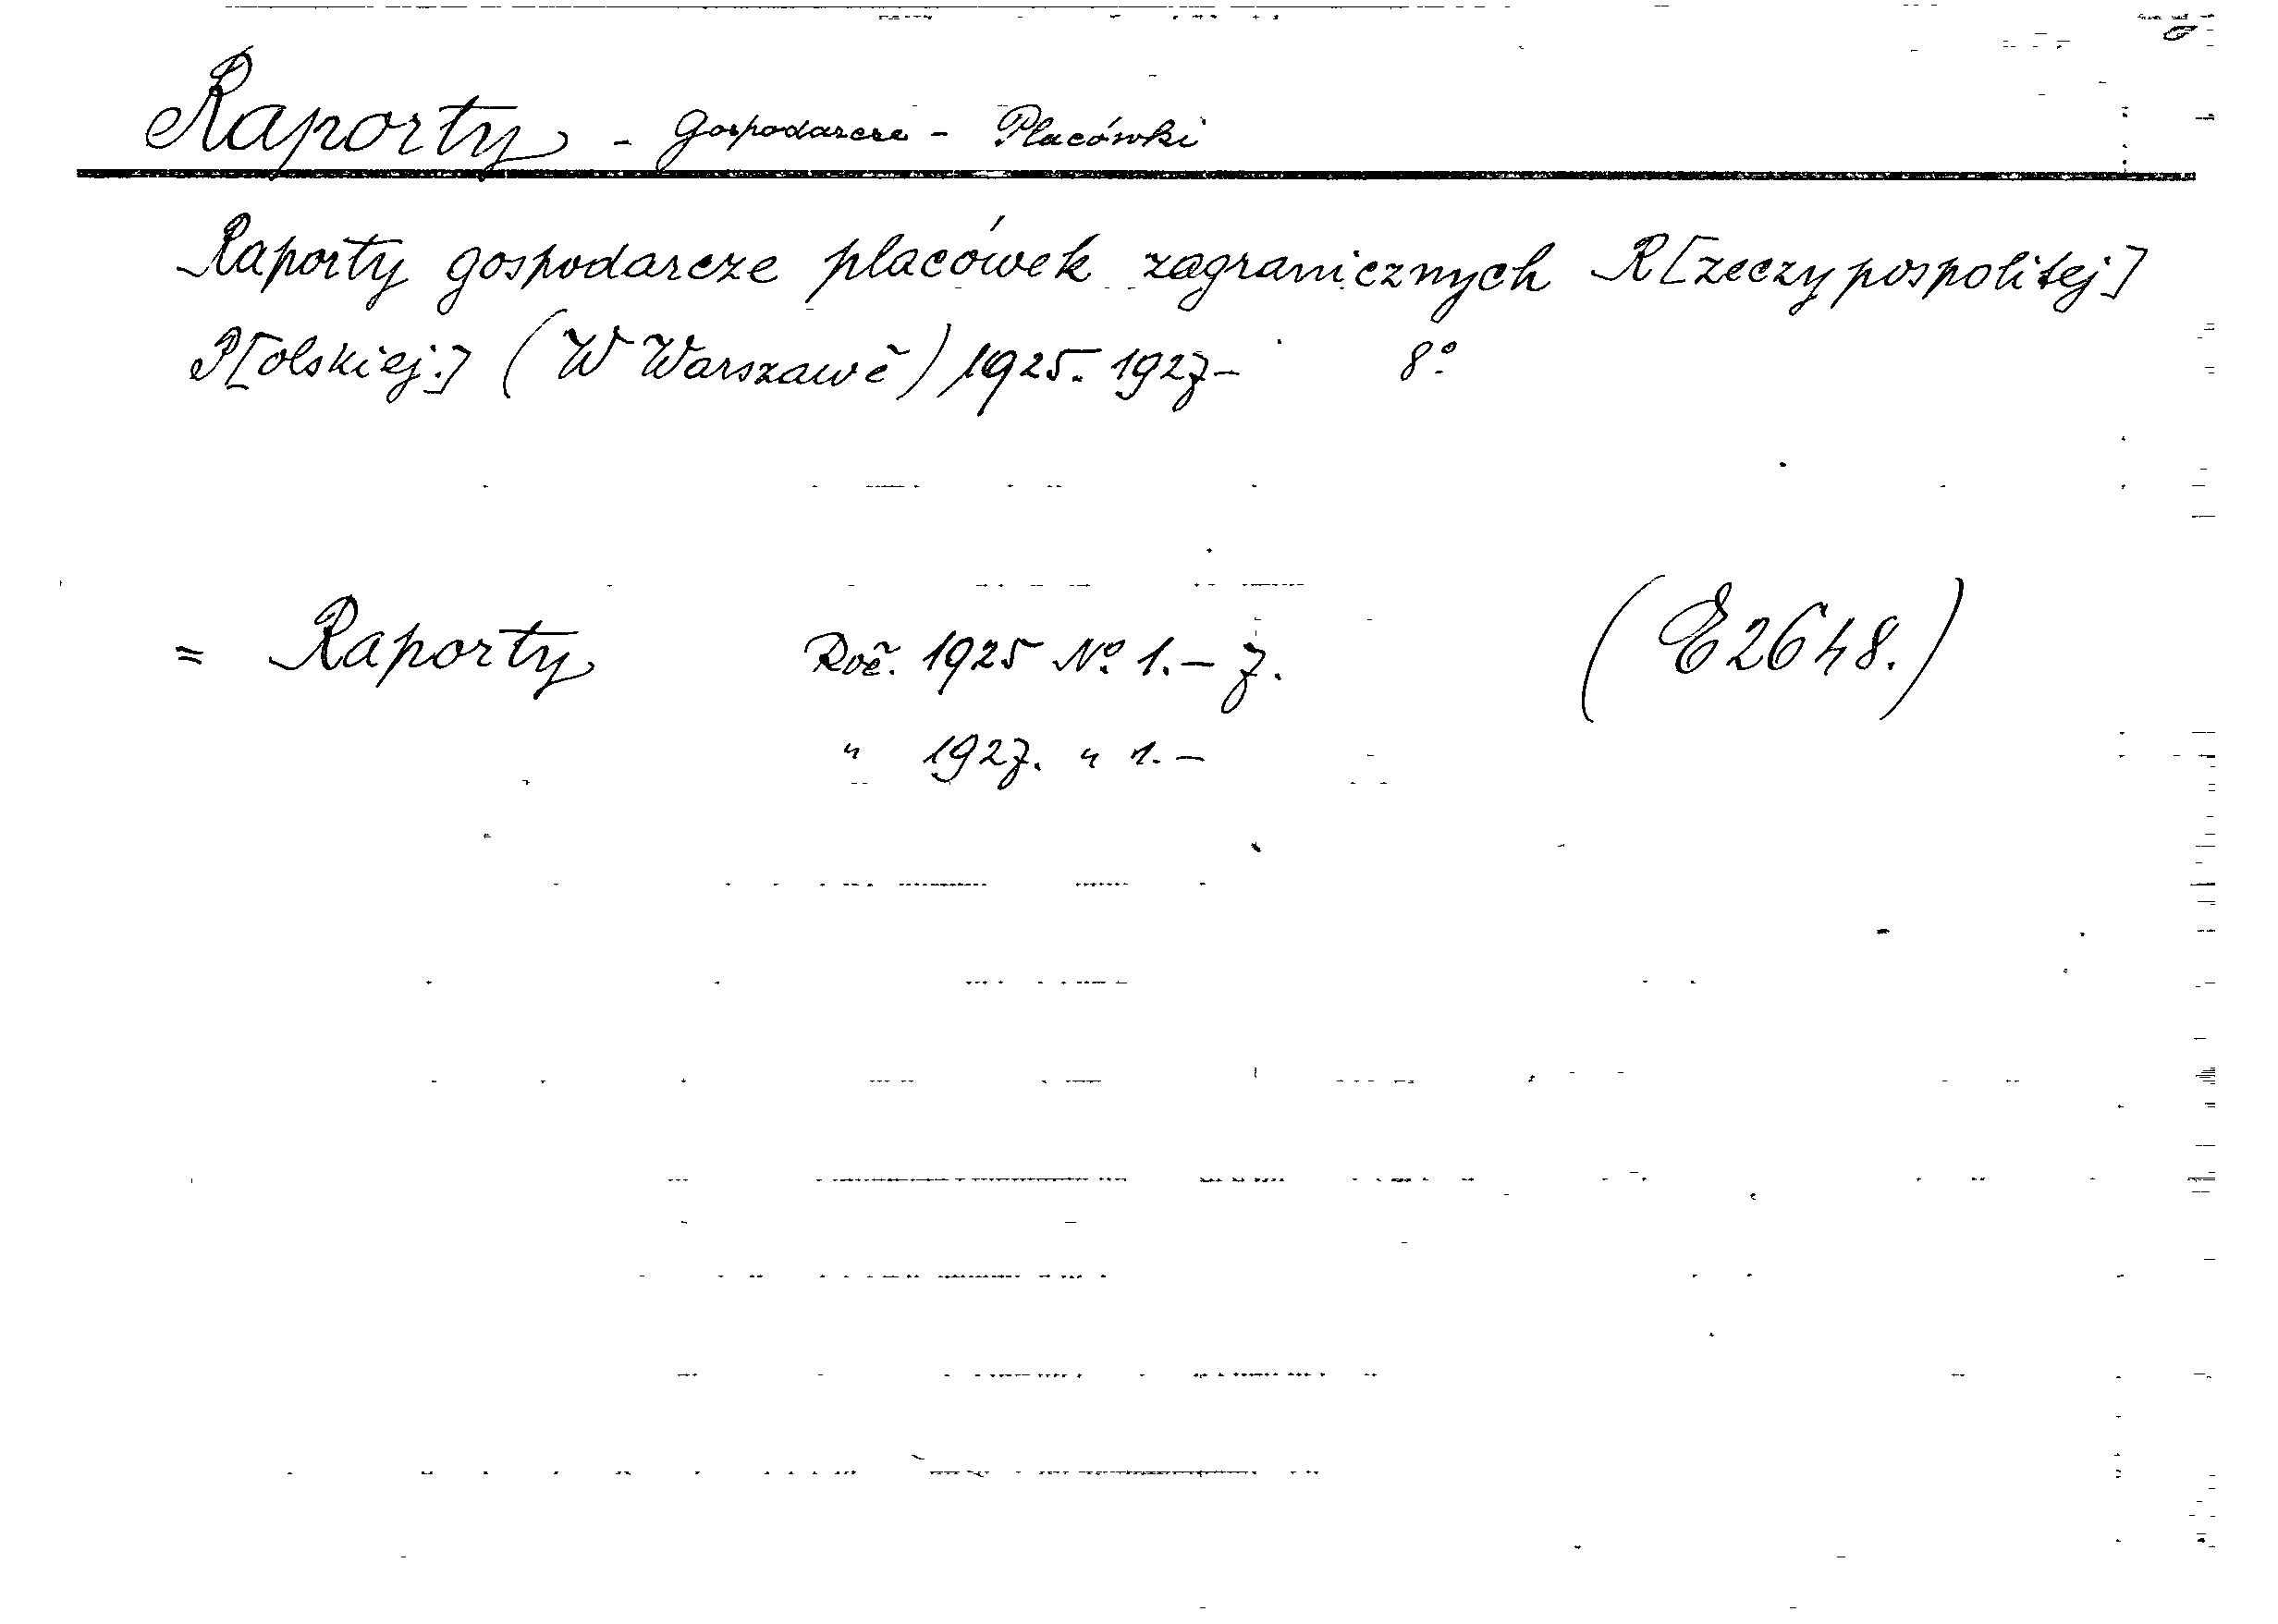 Raporty - Gospodarcze - Placówki
Raporty gospodarcze placówek zagranicznych R[zeczypospolitej]
P[olskiej.] (W Warszawě) 1925. 1927- 8°
= Raporty Roč. 1925 No. 1.-7. (E2648.)
" 1927. " 1.-